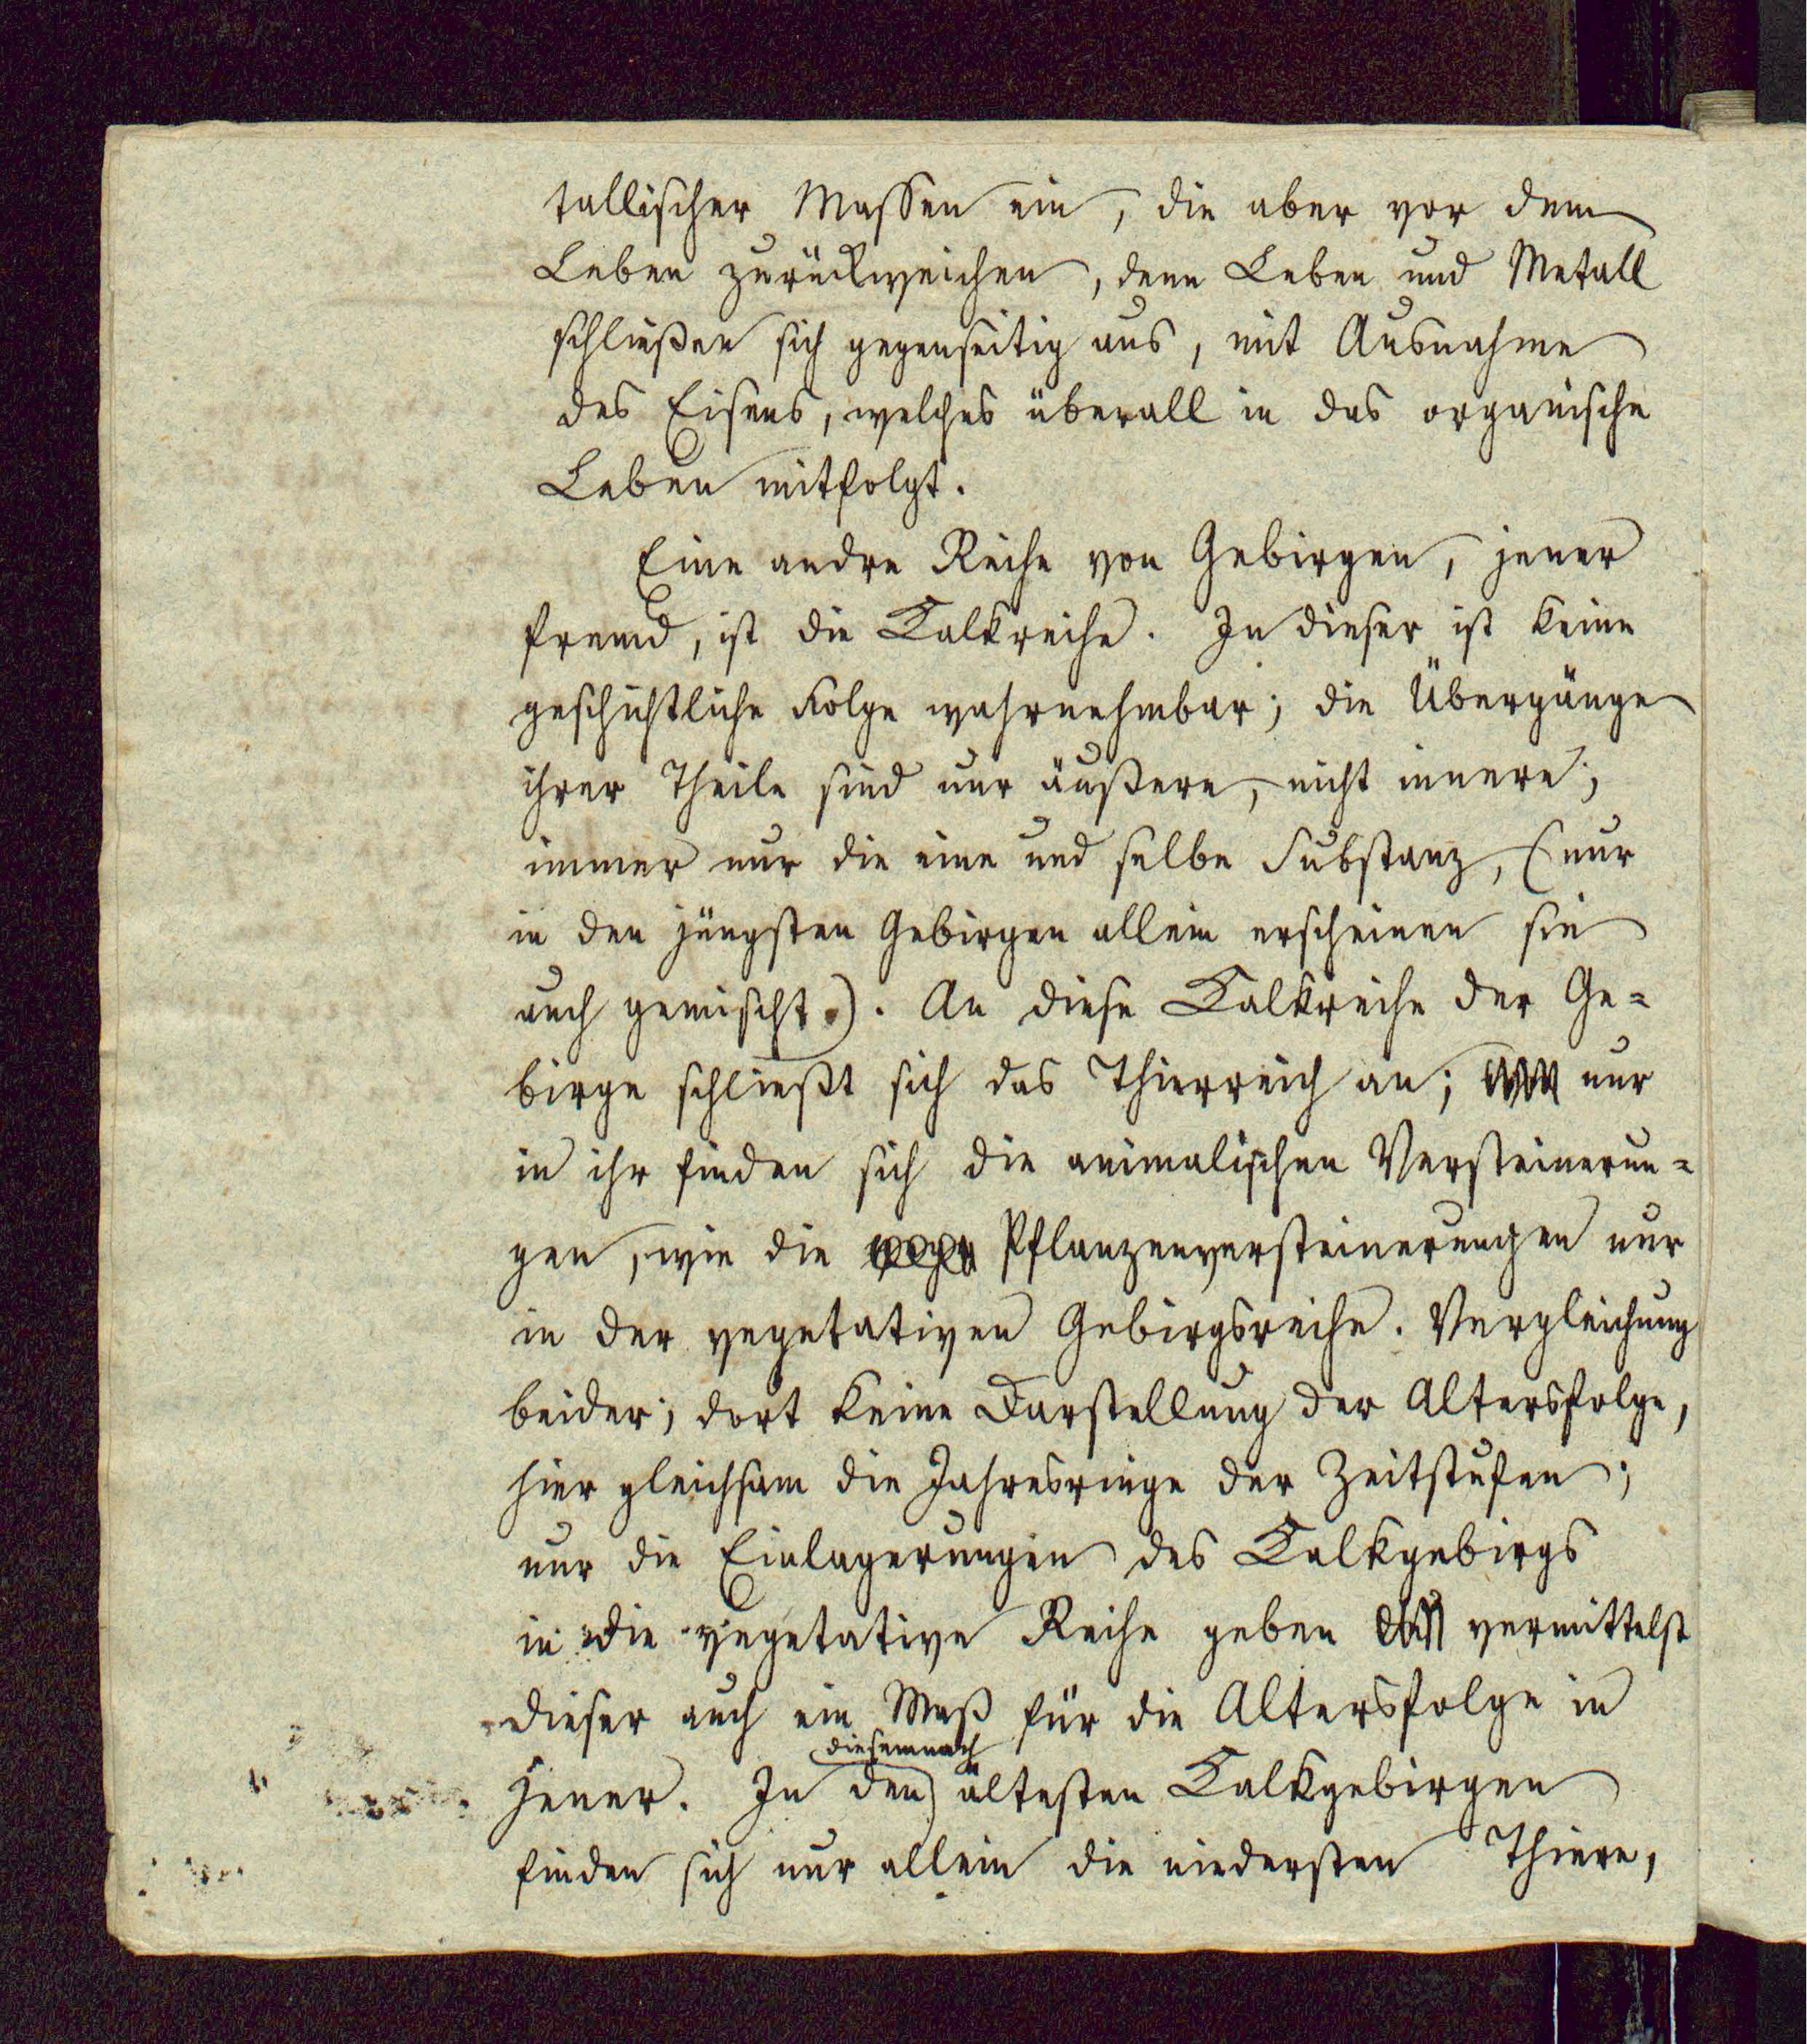 tallischer Massen ein, die aber vor dem
Leben zurückweichen, denn Leben und Metall
schließen sich gegenseitig aus, mit Ausnahme
des Eisens, welches überall in das organische
Leben mitfolgt.
Eine andre Reihe von Gebirgen, jener
fremd, ist die Kalkreihe. In dieser ist keine
geschichtliche Folge wahrnehmbar; die Übergänge
ihrer Theile sind nur äußere, nicht innere;
immer nur die eine und selbe Substanz, (nur
in den jüngsten Gebirgen allein erscheinen sie
auch gemischt.). An diese Kalkreihe der Ge=
birge schließt sich das Thierreich an; nur
in ihr finden sich die animalischen Versteinerun=
gen, wie die Pflanzenversteinerungen nur
in der vegetativen Gebirgsreihe. Vergleichung
beider; dort keine Darstellung der Altersfolge,
hier gleichsam die Jahresringe der Zeitstufen;
nur die Einlagerungen des Kalkgebirgs
in die vegetative Reihe geben vermittelst
dieser auch ein Maß für die Altersfolge in
diesemnach
jener. In den ältesten Kalkgebirgen
finden sich nur allein die niedersten Thiere,